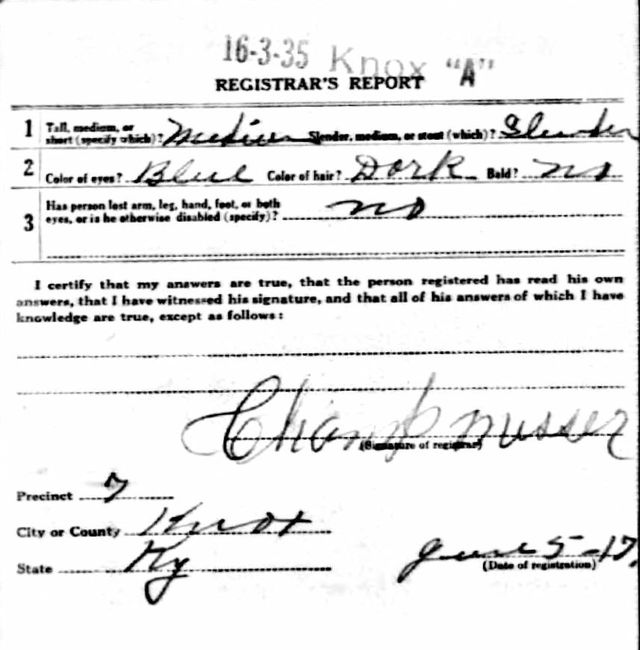 16-3-35 Knox "A"
REGISTRAR'S REPORT
1 Tall, medium, or short (specify which)? Medium Slender, medium, or stout (which)? Slender
2 Color of eyes? Blue Color of hair? Dark Bald? no
3 Has person lost arm, leg, hand, foot, or both
eyes, or is he otherwise disabled (specify)? no
I certify that my answers are true, that the person registered has read his own
answers, that I have witnessed his signature, and that all of his answers of which I have
knowledge are true, except as follows:
(Signature of registrar)
Precinct 7
City or County Knox
State Ky June 5-17
(Date of registration)